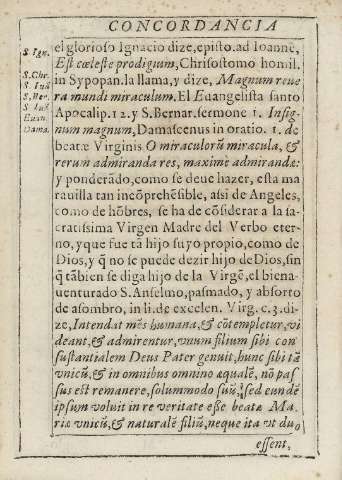 CONCORDANCIA
S. Ign.
S. Chr.
S. Iuã
S. Ber.
S. Iuã
Euan.
Dama.
el glorioso Ignacio dize, episto. ad Ioanne,
Est cœleste prodigium, Chrisostomo homil.
in Sypopan. la llama, y dize, Magnum reue
ra mundi miraculum. El Euangelista santo
Apocalip. 12. y S. Bernar. sermone 1. Insig-
num magnum, Damascenus in oratio. 1. de
beatæ Virginis O miraculorũ miracula, &
rerum admiranda res, maximè admirandæ:
y ponderãdo, como se deue hazer, esta ma
rauilla tan incõprehẽsible, assi de Angeles,
como de hõbres, se ha de cõsiderar a la sa-
cratissima Virgen Madre del Verbo eter-
no, y que fue tã hijo suyo propio, como de
Dios, y q̃ no se puede dezir hijo de Dios, sin
q̃ tãbien se diga hijo de la Virgẽ, el biena-
uenturado S. Anselmo, pasmado, y absorto
de asombro, in li. de excelen. Virg. c. 3. di-
ze, Intendat mẽs humana, & cõtempletur, vi
deant, & admirentur, vnum filium sibi con
sustantialem Deus Pater genuit, hunc sibi tã
vnicũ, & in omnibus omnino æqualẽ, nõ pas
sus est remanere, solummodo suũ, sed eundẽ
ipsum voluit in re veritate esse beatæ Ma-
riæ vnicũ, & naturalẽ filiũ, neque ita vt duo
essent,